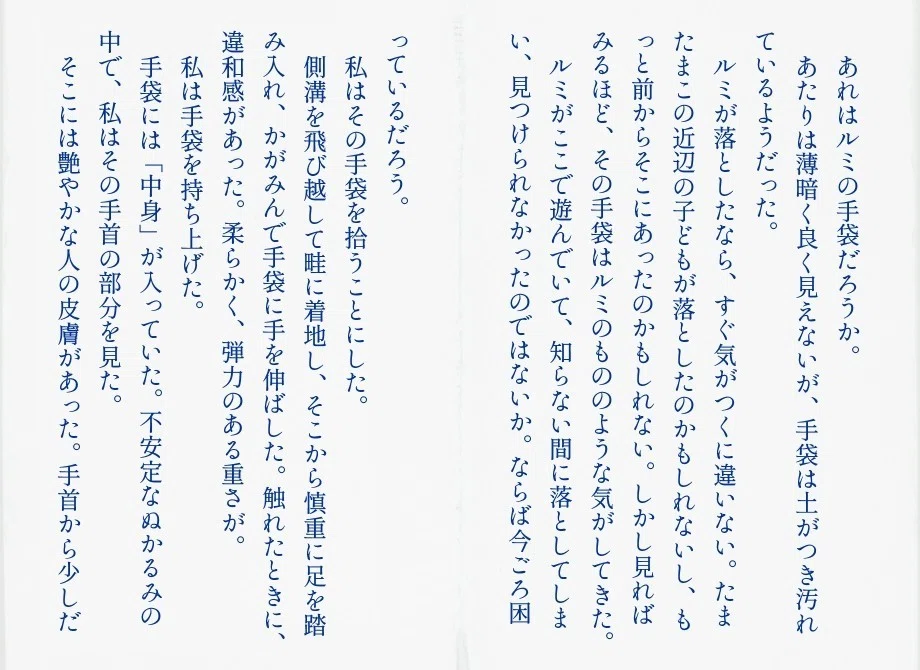 あれはルミの手袋だろうか。
あたりは薄暗く良く見えないが、手袋は土がつき汚れ
ているようだった。
ルミが落としたなら、すぐ気がつくに違いない。たま
たまこの近辺の子どもが落としたのかもしれないし、も
っと前からそこにあったのかもしれない。しかし見れば
みるほど、その手袋はルミのもののような気がしてきた。
ルミがここで遊んでいて、知らない間に落としてしま
い、見つけられなかったのではないか。ならば今ごろ困
っているだろう。
私はその手袋を拾うことにした。
側溝を飛び越して畦に着地し、そこから慎重に足を踏
み入れ、かがみんで手袋に手を伸ばした。触れたときに、
違和感があった。柔らかく、弾力のある重さが。
私は手袋を持ち上げた。
手袋には「中身」が入っていた。不安定なぬかるみの
中で、私はその手首の部分を見た。
そこには艶やかな人の皮膚があった。手首から少しだ